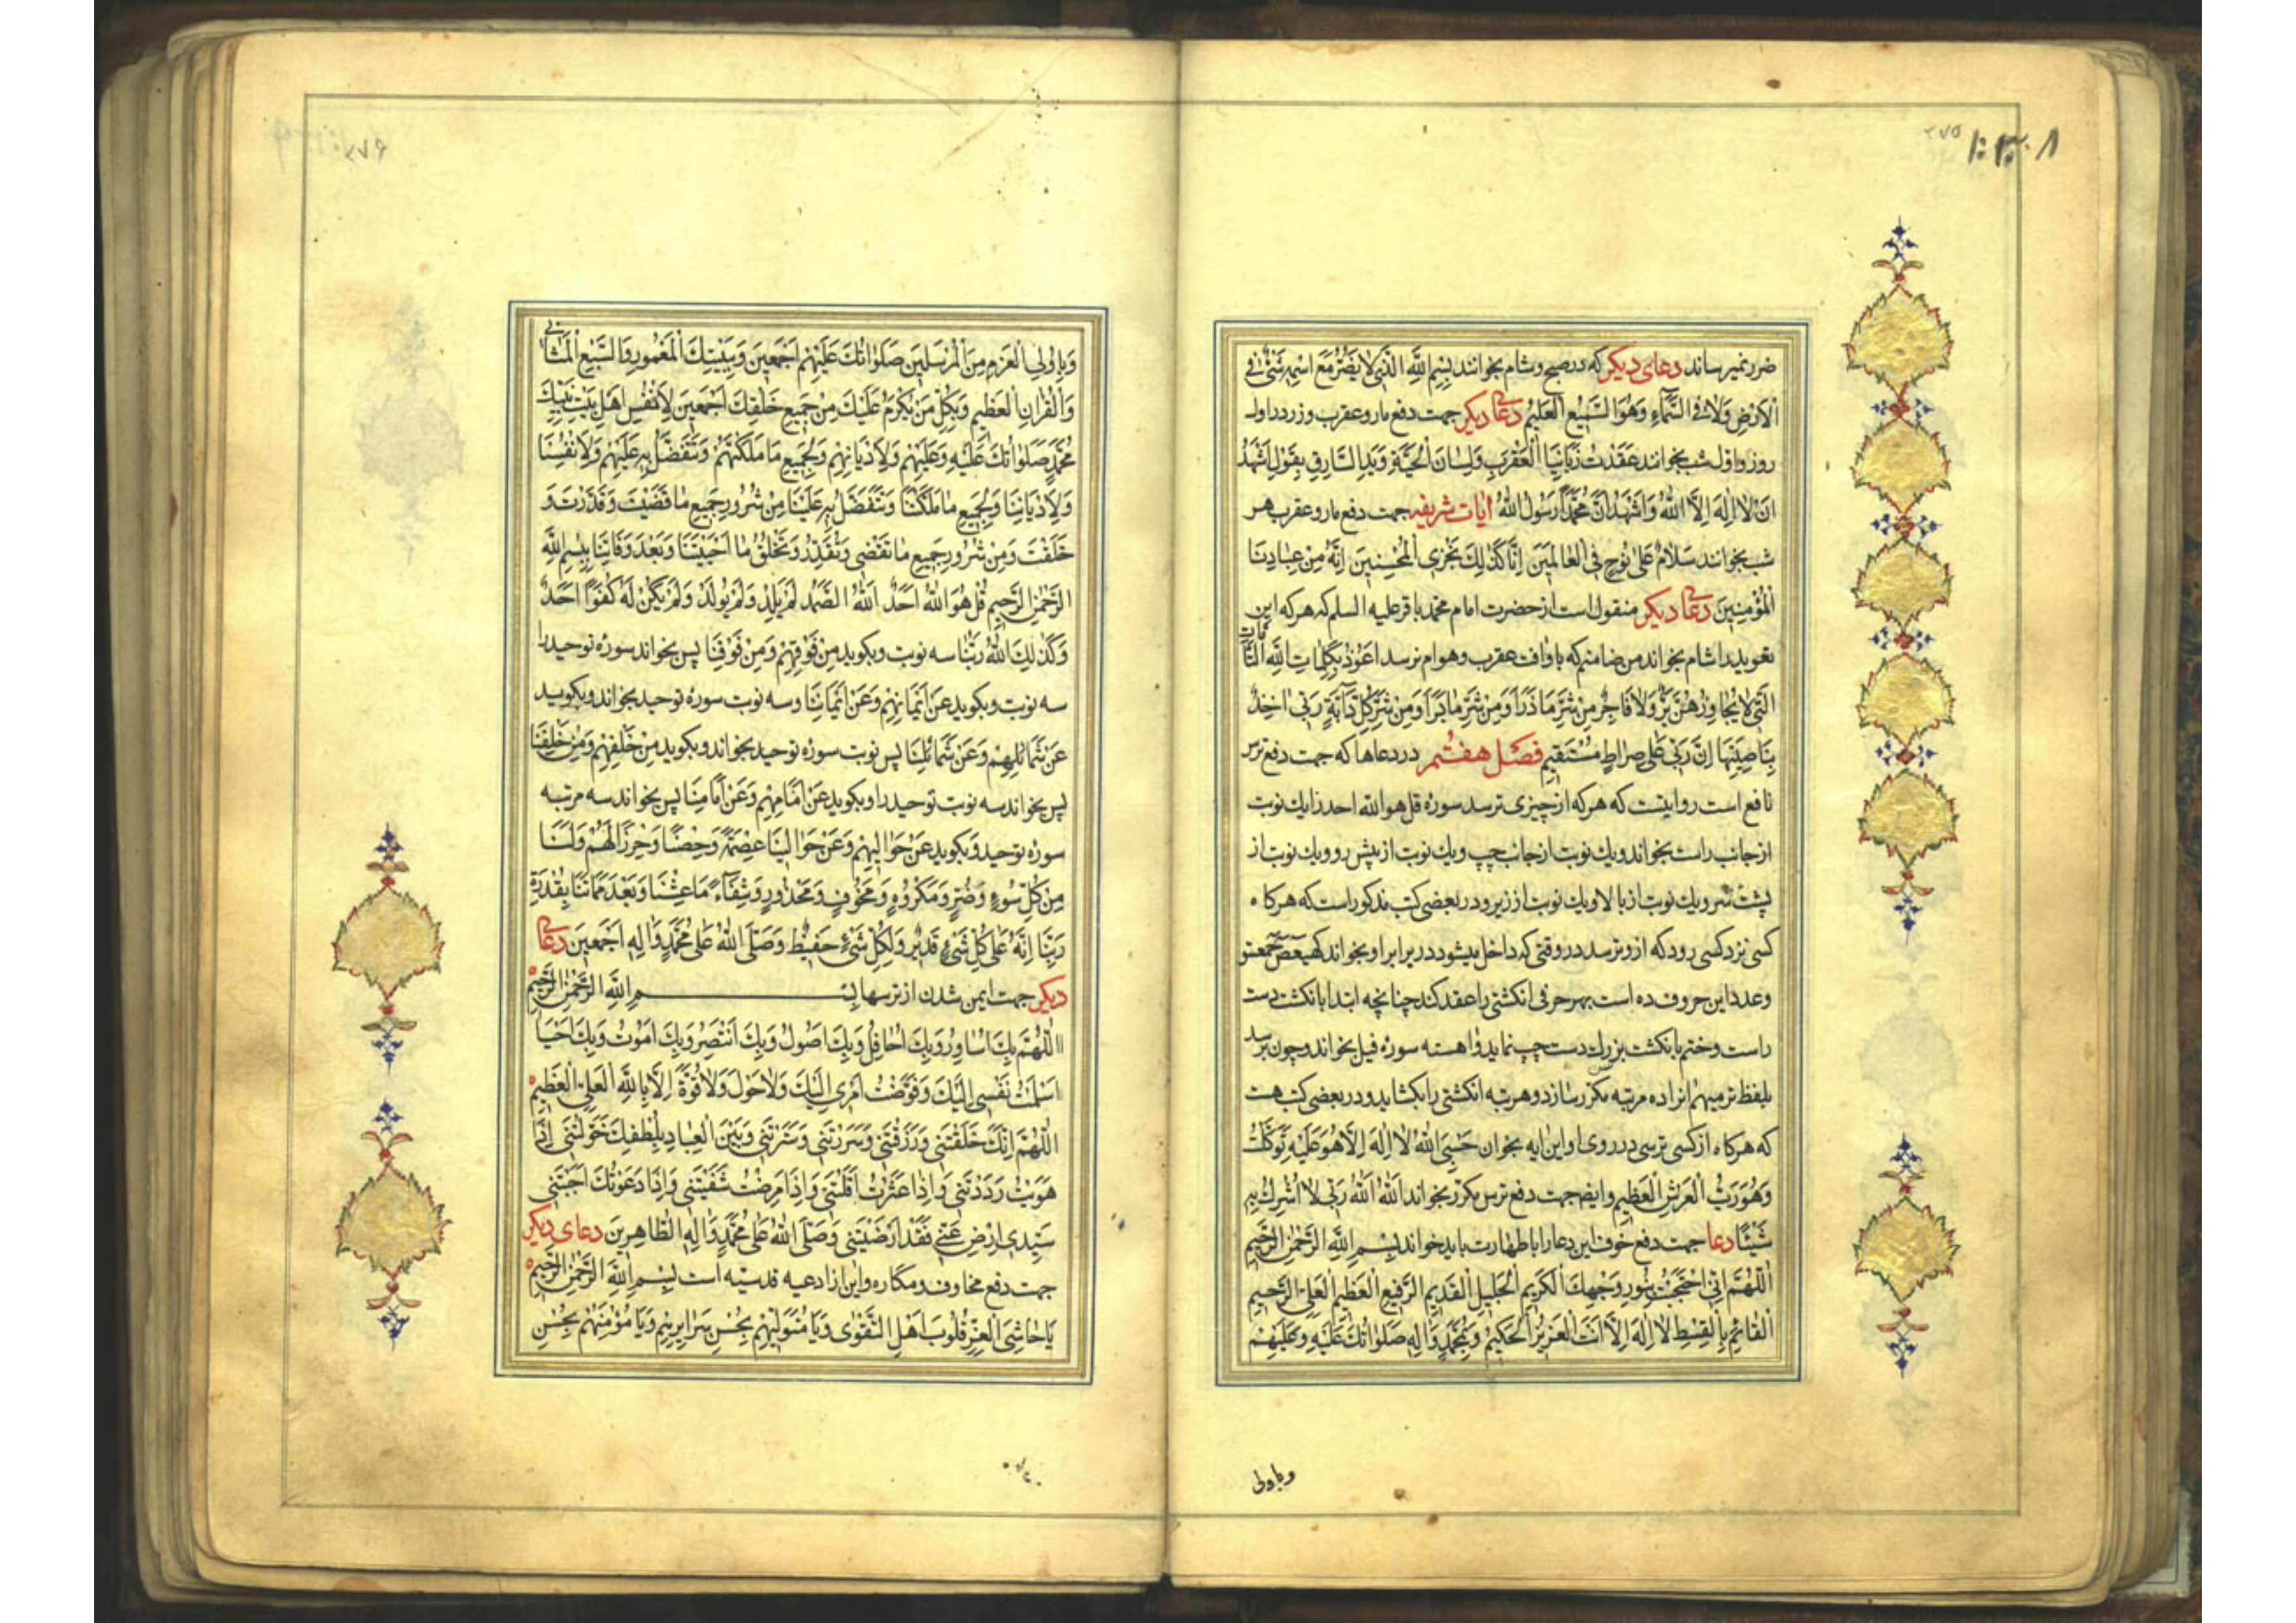 ۲۷۵
ضرر نمیرساند دعای دیکر که در صبح و شام بخوانند بِسْمِ اللّهِ الَّذی لا یَضُرُّ مَعَ اسْمِهِ شَیْءٌ فِی
الْاَرْضِ وَلا فِی السَّمآءِ وَهُوَ السَّمیعُ الْعَلیمُ دعای دیکر جهت دفع مار و عقرب و زرد در اول
روز و اول شب بخوانند عَقَدْتُ زَبانِیَا الْعَقْرَبِ وَلِسانَ الْحَیَّةِ وَیَدَ السّارِقِ بِقَوْلِ اَشْهَدُ
اَنْ لا اِلهَ اِلاَّ اللّهُ وَاَشْهَدُ اَنَّ مُحَمَّداً رَسُولُ اللّهِ ایات شریفه جهت دفع مار و عقرب هر
شب بخوانند سَلامٌ عَلی نُوحٍ فِی الْعالَمینَ اِنّا کَذلِكَ نَجْزِی الْمُحْسِنینَ اِنَّهُ مِنْ عِبادِنَا
الْمُؤْمِنینَ دعای دیکر منقول است از حضرت امام محمد باقر علیه السلم که هر که این
تعویذ را شام بخواند من ضامنم که باو افت عقرب و هوام نرسد اَعُوذُ بِکَلِماتِ اللّهِ التّامّاتِ
الَّتی لا یُجاوِزُهُنَّ بَرٌّ وَلا فاجِرٌ مِنْ شَرِّ ما ذَرَأَ وَمِنْ شَرِّ ما بَرَأَ وَمِنْ شَرِّ کُلِّ دآبَّةٍ رَبّی اخِذٌ
بِناصِیَتِها اِنَّ رَبّی عَلی صِراطٍ مُسْتَقیمٍ فصل هفتم در دعاها که جهت دفع ترس
نافع است روایتست که هر که از چیزی ترسد سوره قل هو الله احد را یك نوبت
از جانب راست بخواند و یك نوبت از جانب چپ و یك نوبت از پیش رو و یك نوبت از
پشت سر و یك نوبت از بالا و یك نوبت از زیر و در بعضی کتب مذکور است که هر کاه
کسی نزد کسی رود که از و ترسد در وقتی که داخل میشود در برابر او بخواند کهیعص حمعسق
و عدد این حروف ده است بهر حرفی انکشتی را عقد کند چنانچه ابتدا بانکشت دست
راست و ختم بانکشت بزرك دست چپ نماید و اهسته سوره فیل بخواند و چون برسد
بلفظ ترمیهم انرا ده مرتبه مکرر سازد و هر مرتبه انکشتی را بکشاید و در بعضی کتب هست
که هر کاه از کسی ترسی در روی او این ایه بخوان حَسْبِیَ اللّهُ لا اِلهَ اِلاّ هُوَ عَلَیْهِ تَوَکَّلْتُ
وَهُوَ رَبُّ الْعَرْشِ الْعَظیمِ وایضا جهت دفع ترس مکرر بخواند اَللّهُ اَللّهُ رَبّی لا اُشْرِكُ بِهِ
شَیْئًا دعا جهت دفع خوف این دعا را با طهارت باید خواند بِسْمِ اللّهِ الرَّحْمنِ الرَّحیمِ
اَللّهُمَّ اِنّی احْتَجَبْتُ بِنُورِ وَجْهِكَ الْکَریمِ الْجَلیلِ الْقَدیمِ الرَّفیعِ الْعَظیمِ الْعَلِیِّ الرَّحیمِ
الْقائِمِ بِالْقِسْطِ لا اِلهَ اِلاّ اَنْتَ الْعَزیزُ الْحَکیمُ وَبِمُحَمَّدٍ وَالِهِ صَلَواتُكَ عَلَیْهِ وَعَلَیْهِمْ
وباولی
۲۷۶
وَبِاُولِی الْعَزْمِ مِنَ الْمُرْسَلینَ صَلَواتُكَ عَلَیْهِمْ اَجْمَعینَ وَبَیْتِكَ الْمَعْمُورِ وَالسَّبْعِ الْمَثانی
وَالْقُرْانِ الْعَظیمِ وَبِکُلِّ مَنْ یَکْرُمُ عَلَیْكَ مِنْ جَمیعِ خَلْقِكَ اَجْمَعینَ لِاَنْفُسِ اَهْلِ بَیْتِ نَبِیِّكَ
مُحَمَّدٍ صَلَواتُكَ عَلَیْهِ وَعَلَیْهِمْ وَلِاَدْیانِهِمْ وَلِجَمیعِ ما مَلَّکْتَهُمْ وَتَتَفَضَّلُ بِهِ عَلَیْهِمْ وَلِاَنْفُسِنا
وَلِاَدْیانِنا وَلِجَمیعِ ما مَلَّکْتَنا وَتَتَفَضَّلُ بِهِ عَلَیْنا مِنْ شُرُورِ جَمیعِ ما قَضَیْتَ وَقَدَّرْتَ وَ
خَلَقْتَ وَمِنْ شُرُورِ جَمیعِ ما تَقْضی وَتُقَدِّرُ وَتَخْلُقُ ما اَحْیَیْتَنا وَبَعْدَ وَفاتِنا بِسْمِ اللّهِ
الرَّحْمنِ الرَّحیمِ قُلْ هُوَ اللّهُ اَحَدٌ اَللّهُ الصَّمَدُ لَمْ یَلِدْ وَلَمْ یُولَدْ وَلَمْ یَکُنْ لَهُ کُفُوًا اَحَدٌ
وَکَذلِكَ اللّهُ رَبُّنا سه نوبت و بکوید مِنْ فَوْقِهِمْ وَمِنْ فَوْقِنا پس بخواند سوره توحید را
سه نوبت و بکوید عَنْ اَیْمانِهِمْ وَعَنْ اَیْمانِنا و سه نوبت سوره توحید بخواند و بکوید
عَنْ شَمائِلِهِمْ وَعَنْ شَمائِلِنا پس نوبت سوره توحید بخواند و بکوید مِنْ خَلْفِهِمْ وَمِنْ خَلْفِنا
پس بخواند سه نوبت توحید را و بکوید عَنْ اَمامِهِمْ وَعَنْ اَمامِنا پس بخواند سه مرتبه
سوره توحید و بکوید عَنْ حَوالَیْهِمْ وَعَنْ حَوالَیْنا عِصْمَةً وَحِصْنًا وَحِرْزًا لَهُمْ وَلَنا
مِنْ کُلِّ سُوءٍ وَضُرٍّ وَمَکْرُوهٍ وَمَخُوفٍ وَمَحْذُورٍ وَشِفاءً ما عِشْنا وَبَعْدَ مَماتِنا بِقُدْرَةِ
رَبِّنا اِنَّهُ عَلی کُلِّ شَیْءٍ قَدیرٌ وَلِکُلِّ شَیْءٍ حَفیظٌ وَصَلَّی اللّهُ عَلی مُحَمَّدٍ وَالِهِ اَجْمَعینَ دعای
دیکر جهت ایمن شدن از ترسها بِسْمِ اللّهِ الرَّحْمنِ الرَّحیمِ
اَللّهُمَّ بِكَ اُساوِرُ وَبِكَ اُحافِلُ وَبِكَ اَصُولُ وَبِكَ اَنْتَصِرُ وَبِكَ اَمُوتُ وَبِكَ اَحْیا
اَسْلَمْتُ نَفْسی اِلَیْكَ وَفَوَّضْتُ اَمْری اِلَیْكَ وَلا حَوْلَ وَلا قُوَّةَ اِلاّ بِاللّهِ الْعَلِیِّ الْعَظیمِ
اَللّهُمَّ اِنَّكَ خَلَقْتَنی وَرَزَقْتَنی وَسَرَرْتَنی وَسَتَرْتَنی وَبَیْنَ الْعِبادِ بِلُطْفِكَ خَوَّلْتَنی اِذا
هَوَیْتُ رَدَدْتَنی وَاِذا عَثَرْتُ اَقَلْتَنی وَاِذا مَرِضْتُ شَفَیْتَنی وَاِذا دَعَوْتُكَ اَجَبْتَنی
سَیِّدی ارْضَ عَنّی فَقَدْ اَرْضَیْتَنی وَصَلَّی اللّهُ عَلی مُحَمَّدٍ وَالِهِ الطّاهِرینَ دعای دیکر
جهت دفع مخاوف و مکاره و این از ادعیه قدسیه است بِسْمِ اللّهِ الرَّحْمنِ الرَّحیمِ
یا حاشِیَ الْعِزِّ قُلُوبَ اَهْلِ التَّقْوی وَیا مُتَوَلِّیَهُمْ بِحُسْنِ سَرائِرِهِمْ وَیا مُؤْمِنَهُمْ بِحُسْنِ